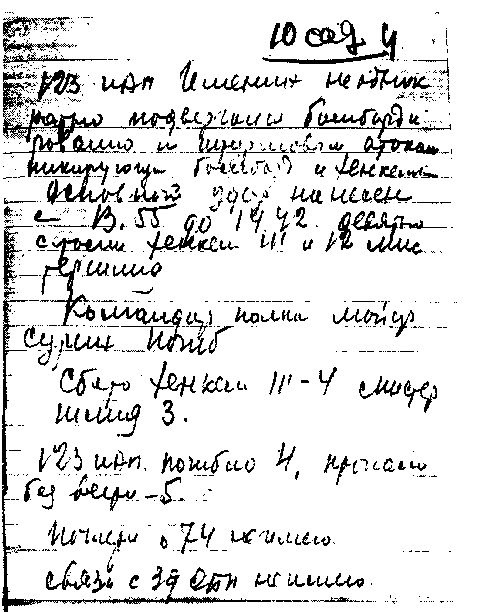 10 сад 4
123 иап Именин неоднок
ратно подвергались бомбарди
ровании и штурмовым атакам
пикирующи бомбард и хенкелями
Основной удар нанесен
с 13.55 до 14.42 девятью
хенкель 111 и 12 мис
Командир полка майор
Сурин погиб
Сбито хенкель 111 - 4 мисер
шмид 3.
123 иап. погибло 4, пропали
без вести - 5.
о 74 не имею
связь с не имею.